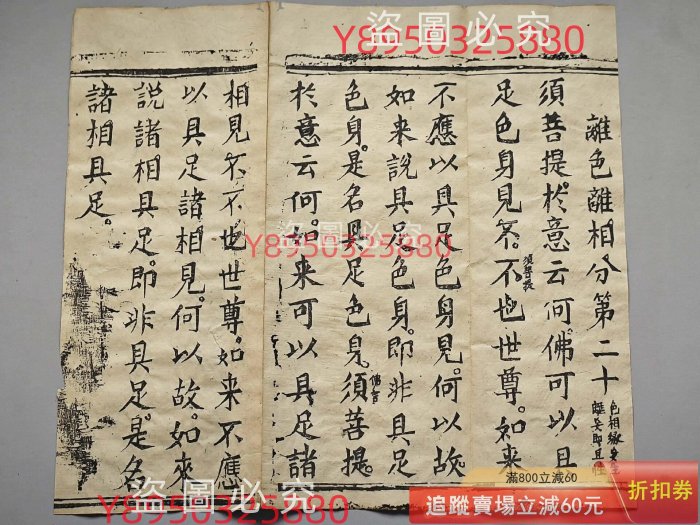 盜圖必究
Y8950325880
離色離相分第二十
須菩提於意云何。佛可以具
足色身見不。不也世尊。如来
須菩提
不應以具足色身見。何以故。
如来說具足色身。即非具足
色身。是名具足色身。須菩提。
佛言
於意云何。如来可以具足諸
相見不不也世尊。如来不應
以具足諸相見。何以故。如來
說諸相具足。即非具足。是名
諸相具足。
盜圖必究
Y8950325880
盜圖必究
Y8950325880
滿800立減60
追蹤賣場立減60元
折扣券